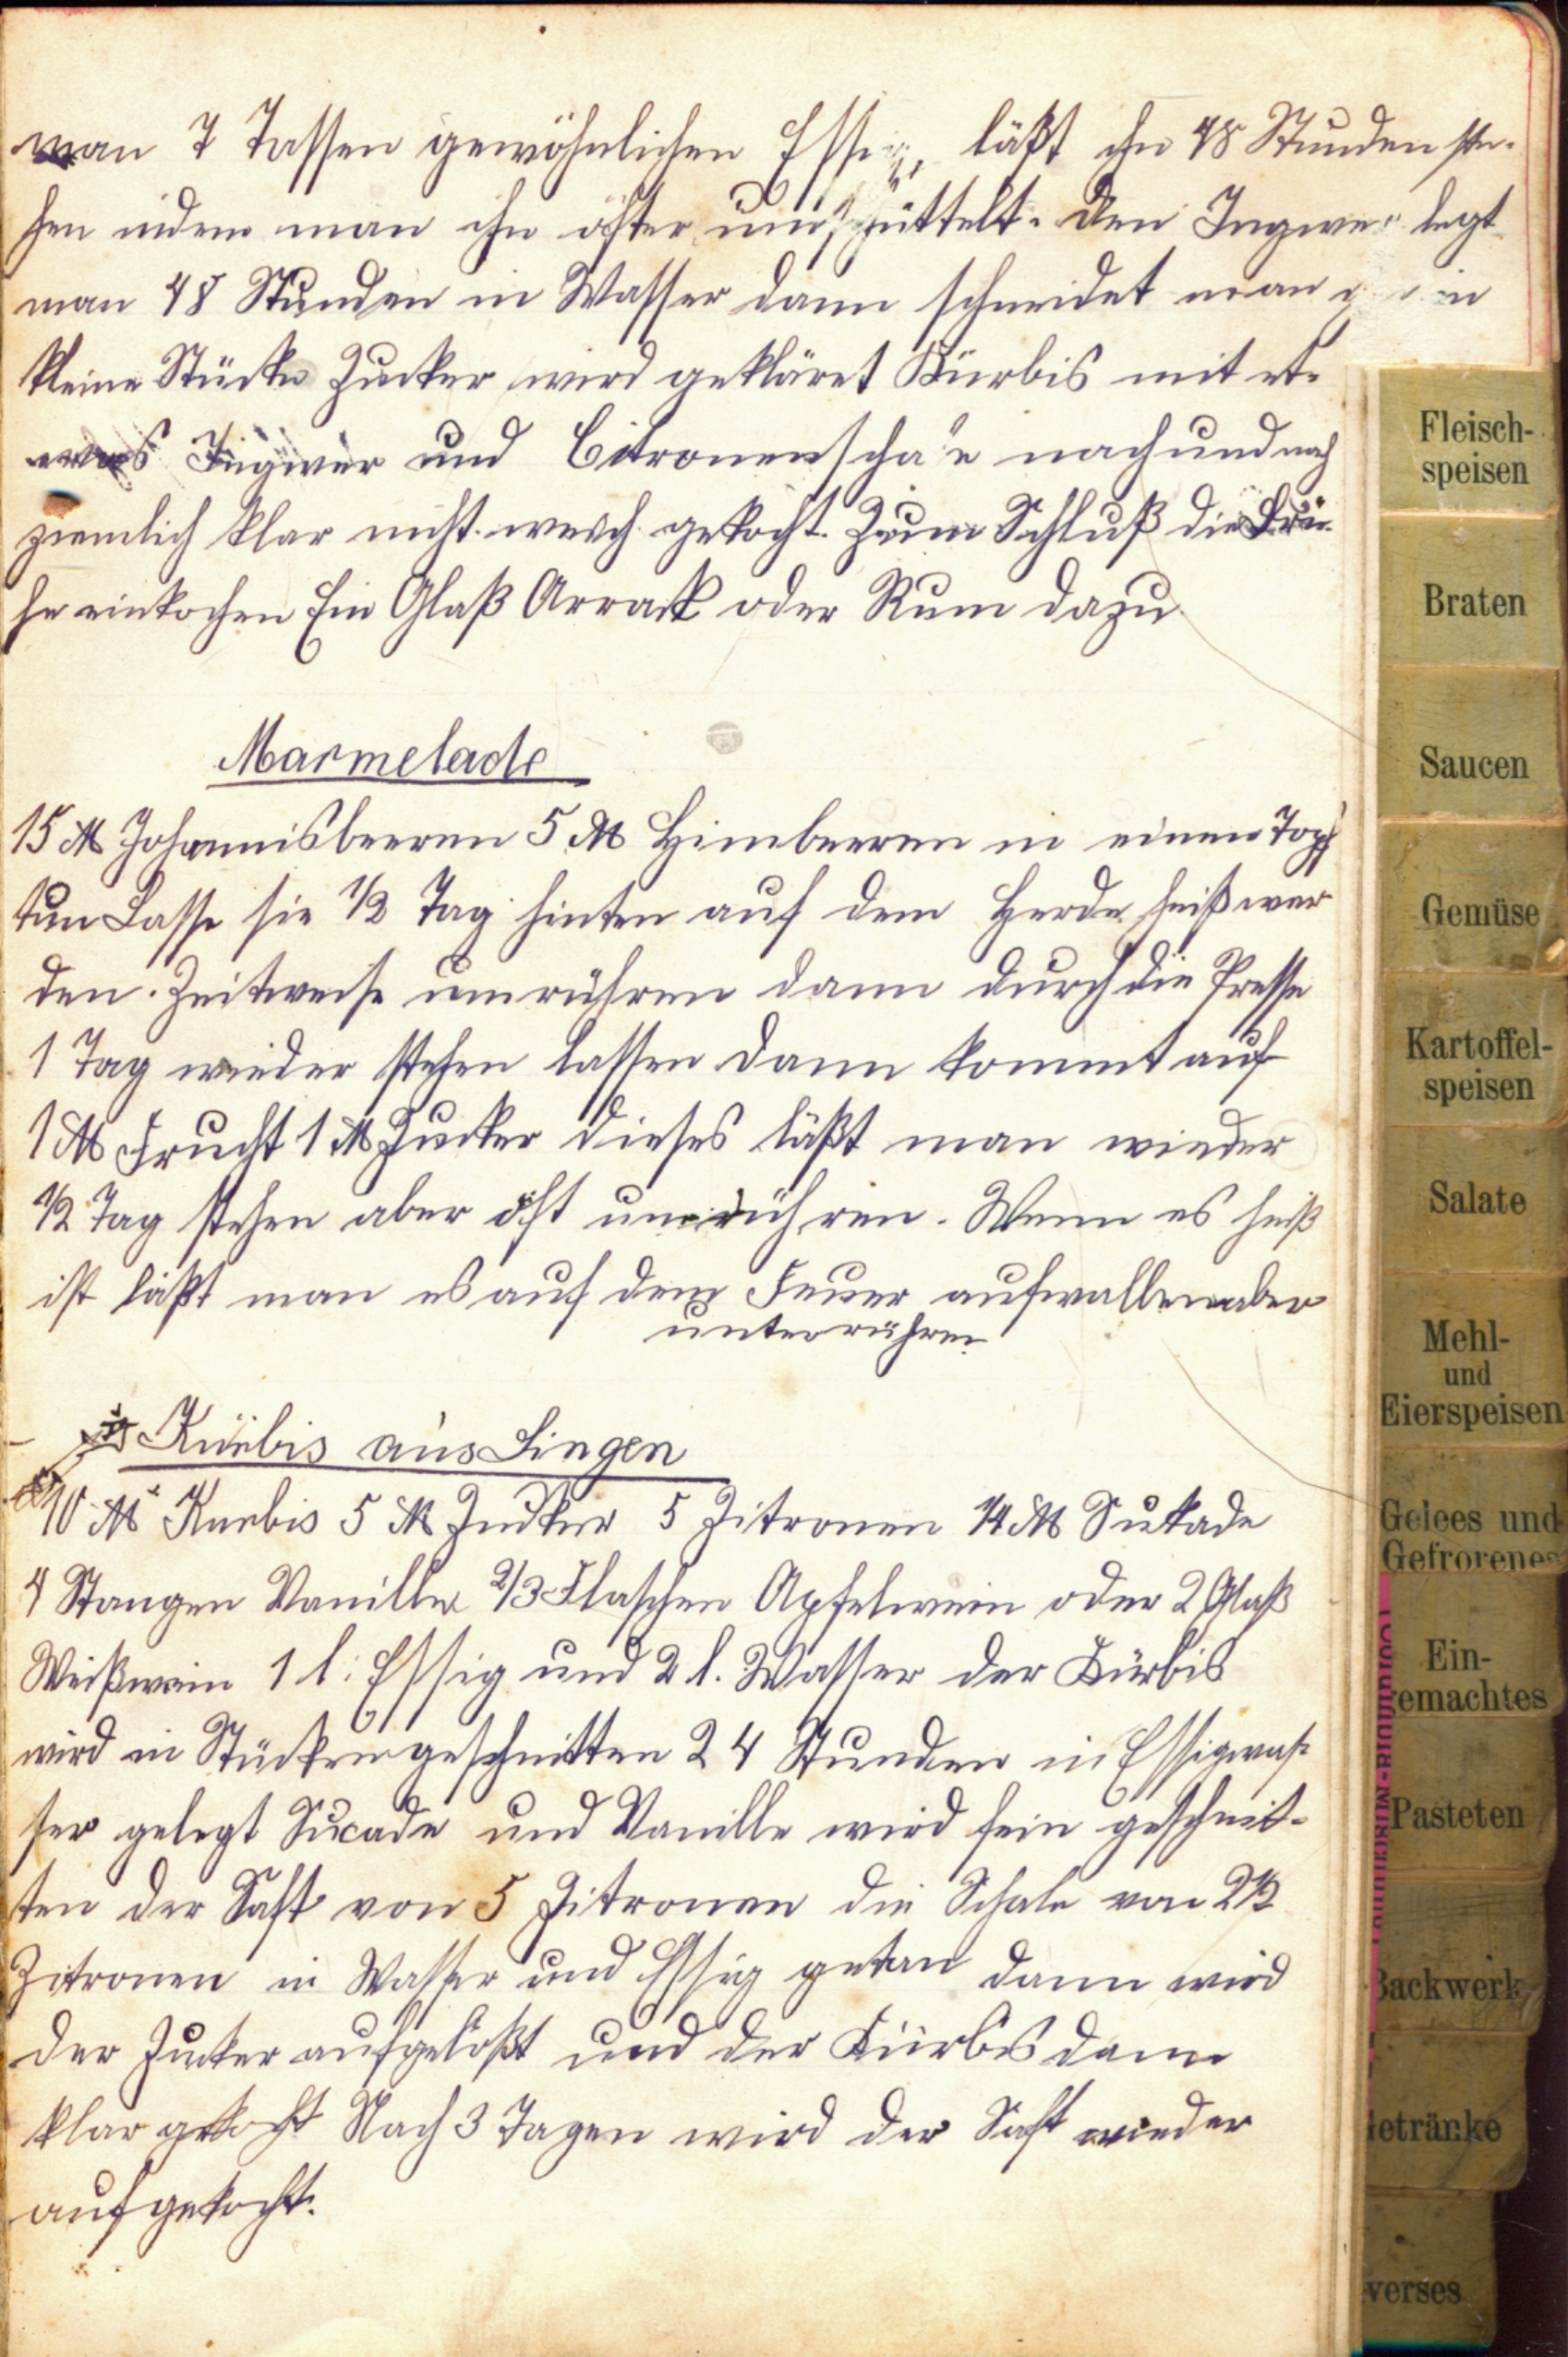 man 7 Tassen gewöhnlichen Essig, läßt ihn 48 Stunden ste-
hen indem man ihn öfter umschüttelt. Den Ingwer legt
man 48 Stunden in Wasser dann schneidet man in
kleine Stücke Zucker wird gekläret Kürbis mit et-
was Ingwer und Citronenschale nach und nach
ziemlich klar nicht weich gekocht. Zum Schluß die Brü-
he einkochen Ein Glaß Arrak oder Rum dazu
Marmelade
15 ℔ Johannisbeeren 5 ℔ Himbeeren in einen Topf
tun Lasse sie 1/2 Tag hinten auf dem Herde heiß wer
den. Zeitweise umrühren dann durch die Presse
1 Tag wieder stehen lassen dann kommt auf
1 ℔ Frucht 1 ℔ Zucker dieses läßt man wieder
1/2 Tag stehen aber oft umrühren. Wenn es heiß
ist läßt man es auf dem Feuer aufwallen aber
unterrühren
Kürbis aus Lingen
10 ℔ Kurbis 5 ℔ Zucker 5 Zitronen 1/4 ℔ Sukade
4 Stangen Vanille 2/3 Flaschen Apfelwein oder 2 Glaß
Weißwein 1 l. Essig und 2 l. Wasser der Kürbis
wird in Stücken geschnitten 24 Stunden in Essigwas-
ser gelegt Sucade und Vanille wird fein geschnit-
ten der Saft von 5 Zitronen die Schale von 2 1/2
Zitronen in Wasser und Essig getan dann wird
der Zucker aufgelößt und der Kürbis dann
klar gekocht Nach 3 Tagen wird der Saft wieder
aufgekocht.
Fleisch-
speisen
Braten
Saucen
Gemüse
Kartoffel-
speisen
Salate
Mehl-
und
Eierspeisen
Gelees und
Gefrorenes
Ein-
gemachtes
Pasteten
Backwerk
Getränke
verses